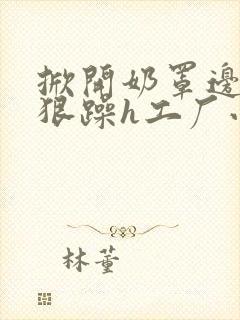 掀開奶罩邊
狠躁h工厂
林董